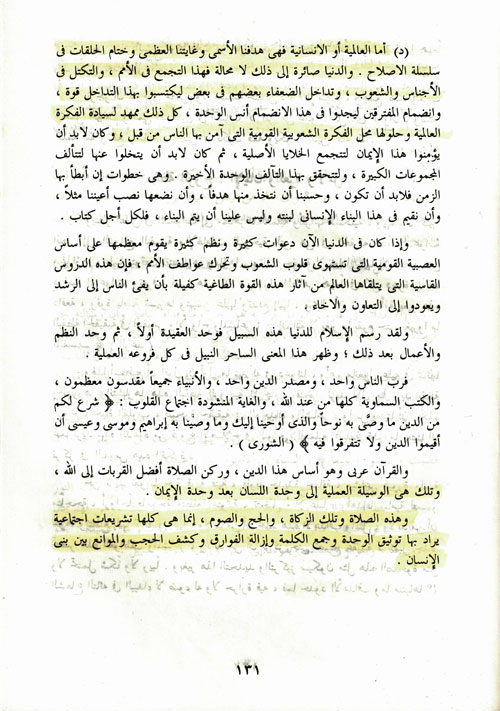 (د) أما العالمية أو الانسانية فهى هدفنا الأسمى وغايتنا العظمى وختام الحلقات فى
سلسلة الاصلاح . والدنيا صائرة إلى ذلك لا محالة فهذا التجمع فى الأمم ، والتكتل فى
الأجناس والشعوب ، وتداخل الضعفاء بعضهم فى بعض ليكتسبوا بهذا التداخل قوة ،
وانضمام المفترقين ليجدوا فى هذا الانضمام أنس الوحدة ، كل ذلك ممهد لسيادة الفكرة
العالمية وحلولها محل الفكرة الشعوبية القومية التى آمن بها الناس من قبل ، وكان لابد أن
يؤمنوا هذا الإيمان لتتجمع الخلايا الأصلية ، ثم كان لابد أن يتخلوا عنها لتتألف
المجموعات الكبيرة ، ولتتحقق بهذا التآلف الوحدة الأخيرة . وهى خطوات إن أبطأ بها
الزمن فلابد أن تكون ، وحسبنا أن نتخذ منها هدفاً ، وأن نضعها نصب أعيننا مثلاً ،
وأن نقيم فى هذا البناء الإنسانى لبنته وليس علينا أن يتم البناء ، فلكل أجل كتاب .
وإذا كان فى الدنيا الآن دعوات كثيرة ونظم كثيرة يقوم معظمها على أساس
العصبية القومية التى تستهوى قلوب الشعوب وتحرك عواطف الأمم ، فإن هذه الدروس
القاسية التى يتلقاها العالم من آثار هذه القوة الطاغية كفيلة بأن يفئ الناس إلى الرشد
ويعودوا إلى التعاون والاخاء .
ولقد رسم الإسلام للدنيا هذه السبيل فوحد العقيدة أولاً ، ثم وحد النظم
والأعمال بعد ذلك ؛ وظهر هذا المعنى الساحر النبيل فى كل فروعه العملية .
فرب الناس واحد ، ومصدر الدين واحد ، والأنبياء جميعاً مقدسون معظمون ،
والكتب السماوية كلها من عند الله ، والغاية المنشودة اجتماع القلوب : ﴿ شرع لكم
من الدين ما وصَّى به نوحاً والذى أوحينا إليك وما وصينا به إبراهيم وموسى وعيسى أن
أقيموا الدين ولا تتفرقوا فيه ﴾ ( الشورى ) .
والقرآن عربى وهو أساس هذا الدين ، وركن الصلاة أفضل القربات إلى الله ،
وتلك هى الوسيلة العملية إلى وحدة اللسان بعد وحدة الإيمان .
وهذه الصلاة وتلك الزكاة ، والحج والصوم ، إنما هى كلها تشريعات اجتماعية
يراد بها توثيق الوحدة وجمع الكلمة وإزالة الفوارق وكشف الحجب والموانع بين بنى
الإنسان .
١٣١